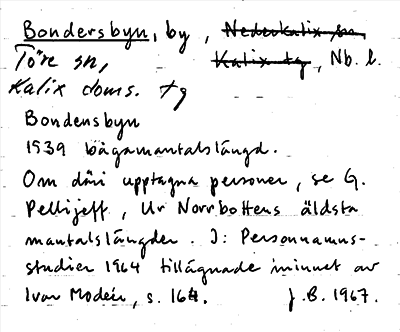 Bondersbyn, by, Nederkalix sn,
Töre sn, Kalix tg, Nb. l.
Kalix doms. tg
Bondersbyn
1539 bågamantalslängd.
Om däri upptagna personer, se G.
Pellijeff, Ur Norrbottens äldsta
mantalslängder. I: Personnamns-
studier 1964 tillägnade minnet av
Ivar Modéer, s. 164. J.B. 1967.